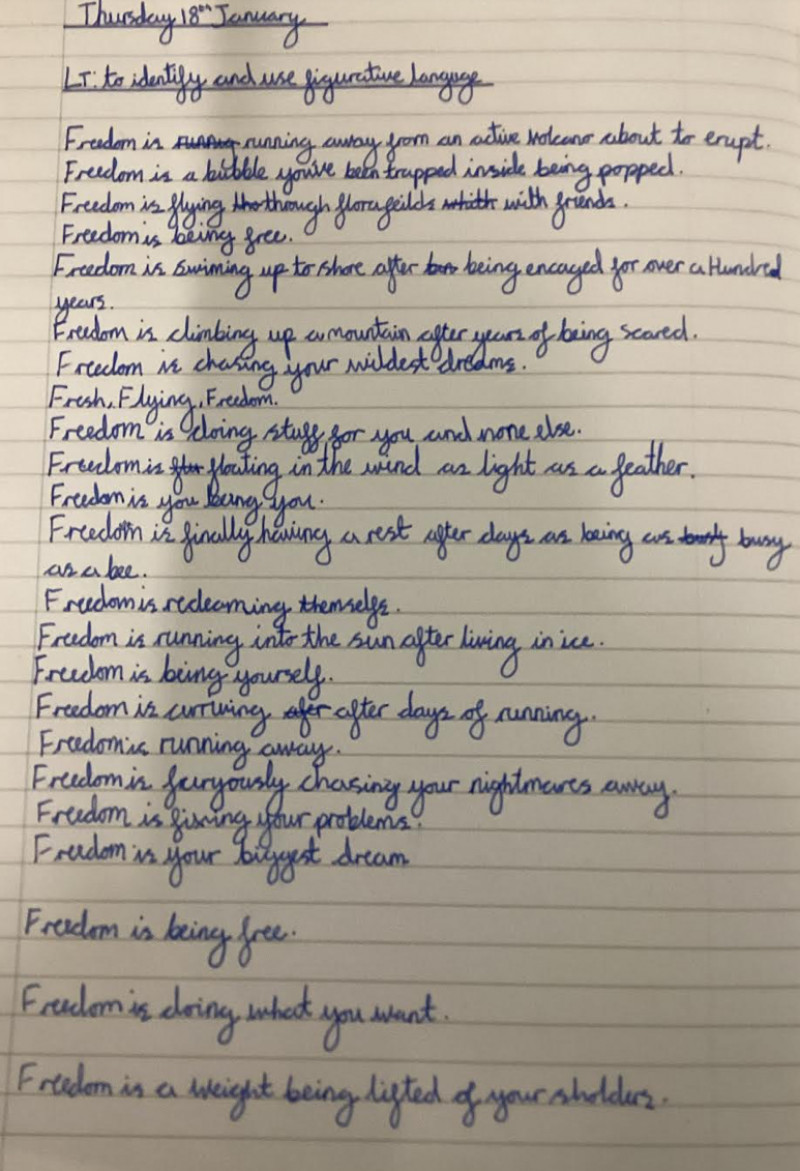 Thursday 18th January
LT: to identify and use figurative languge
Freedom is running running away from an active Volcano about to erupt.
Freedom is a bubble you've been trapped inside being popped.
Freedom is flying tho though flora feilds whith with friends.
Freedom is being free.
Freedom is swiming up to shore after being encaged for over a Hundred
years.
Freedom is climbing up a mountain after years of being scared.
Freedom is chasing your wildest dreams.
Fresh, Flying, Freedom.
Freedom is doing stuff for you and none else.
Freedom is floating in the wind as light as a feather.
Freedom is you being you.
Freedom is finally having a rest after days as being as busy
as a bee.
Freedom is redeaming themselfs.
Freedom is running into the sun after living in ice.
Freedom is being yourself.
Freedom is arriving after days of running.
Freedom is running away.
Freedom is furyously chasing your nightmares away.
Freedom is fixing your problems.
Freedom is your biggest dream
Freedom is being free.
Freedom is doing what you want.
Freedom is a weight being lifted of your sholders.